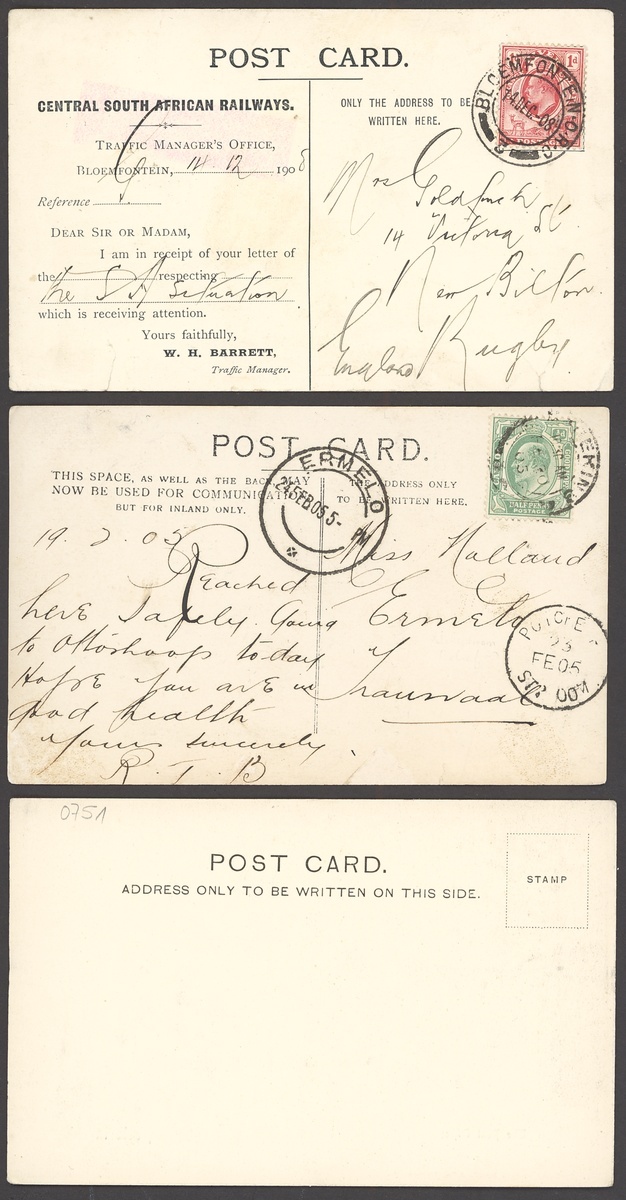 POST CARD.
CENTRAL SOUTH AFRICAN RAILWAYS.
TRAFFIC MANAGER'S OFFICE,
BLOEMFONTEIN, 14 12 1908
Reference
DEAR SIR OR MADAM,
I am in receipt of your letter of
the respecting
the S A situation
which is receiving attention.
Yours faithfully,
W. H. BARRETT,
Traffic Manager.
ONLY THE ADDRESS TO BE
WRITTEN HERE.
1d
POSTAGE
BLOEMFONTEIN O.R.C.
14 DEC 08
Mrs Goldfinch
14 Victoria St
New Bilton
Rugby
England
POST CARD.
THIS SPACE, AS WELL AS THE BACK, MAY
NOW BE USED FOR COMMUNICATION
BUT FOR INLAND ONLY.
THE ADDRESS ONLY
TO BE WRITTEN HERE.
HALFPENNY
POSTAGE
ERMELO
24 FEB 05 5- PM
19. 2. 05
Reached
here safely. Going
to Ottoshoop today
Hope you are in
good health
Yours sincerely
R. T. B
Miss Holland
Ermelo
Transvaal
FE 05
0751
POST CARD.
ADDRESS ONLY TO BE WRITTEN ON THIS SIDE.
STAMP